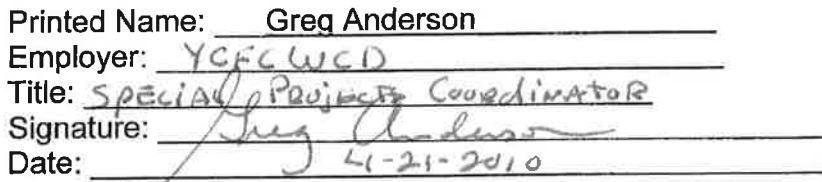 Printed Name: Greg Anderson
Employer: YCFCWCD
Title: SPECIAL Projects Coordinator
Signature: Greg Anderson
Date: 4-21-2010